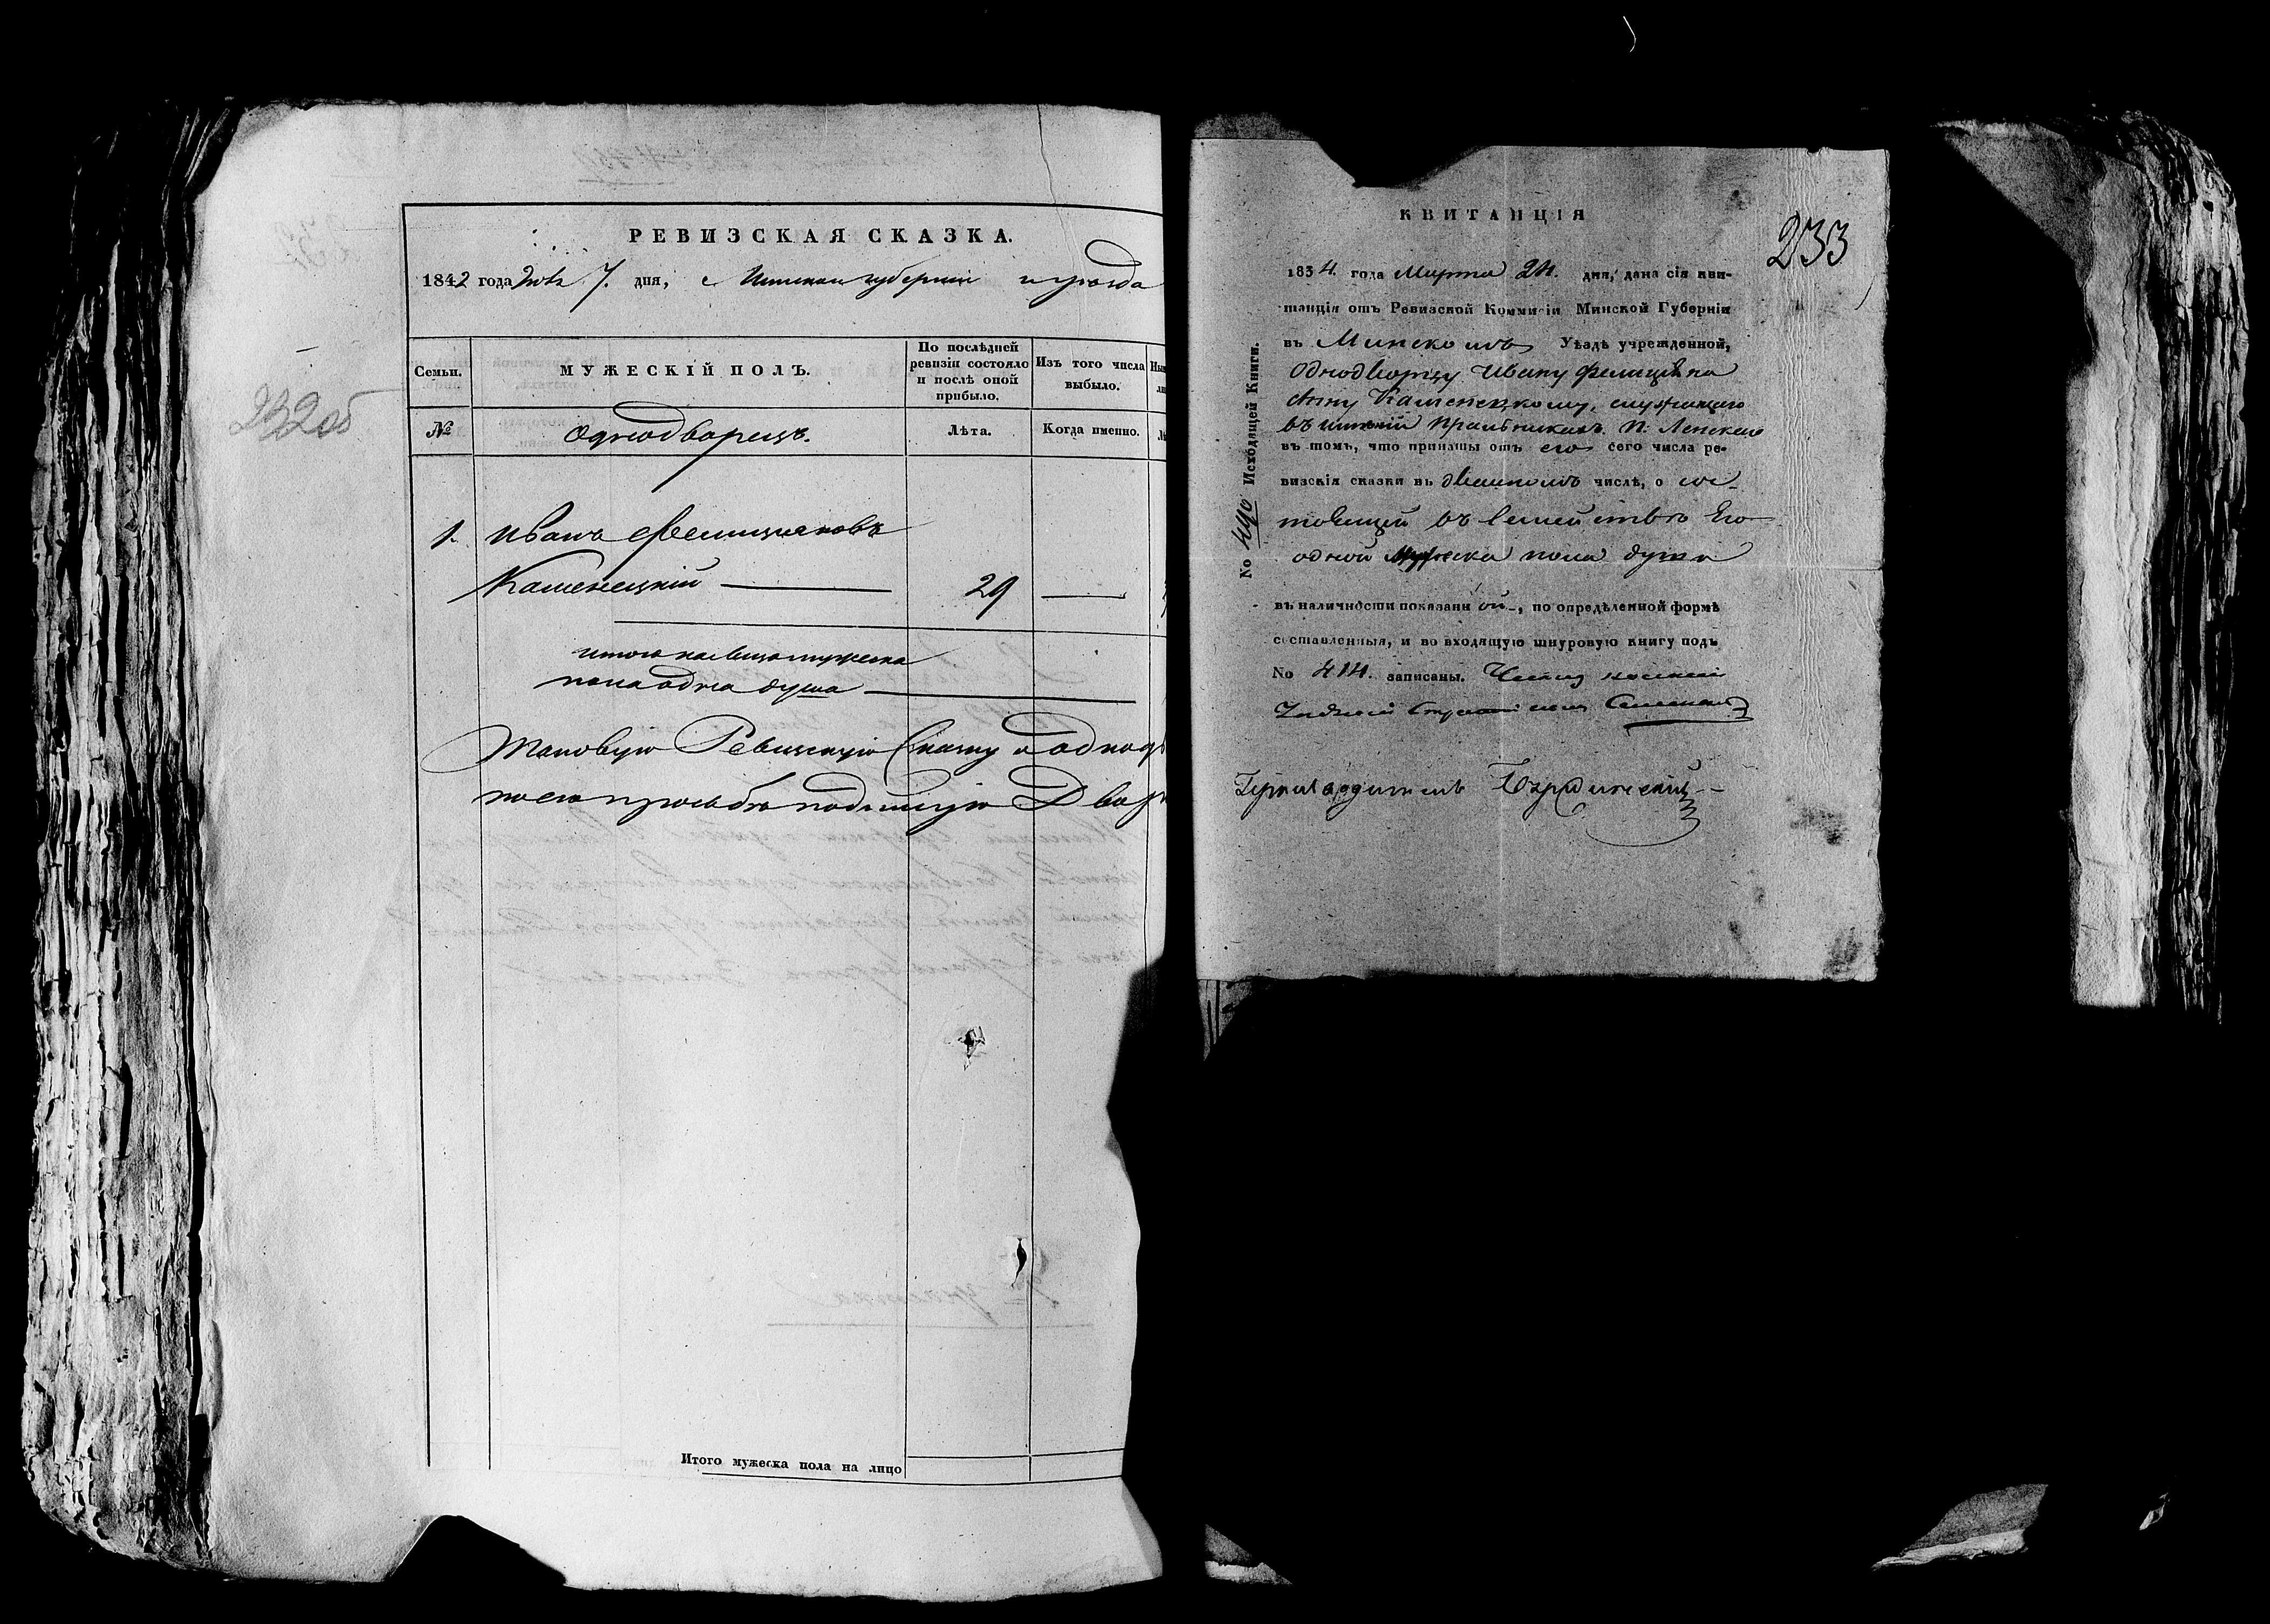 232об
РЕВИЗСКАЯ СКАЗКА.
1842 года 7. дня, Минской губернии и уезда
Семьи.
МУЖЕСКІЙ ПОЛЪ.
По послѣдней ревизіи состояло и послѣ оной прибыло.
Изъ того числа выбыло.
№
Однодворецъ.
Лѣта.
Когда именно.
1. Иванъ Фелиціяновъ
Каменецкій — 29 —
итого налицо мужеска
пола одна душа —
Таковую Ревизскую Сказку
по его прозьбѣ подписую
Итого мужеска пола на лицо
233
КВИТАНЦІЯ
1834. года Марта 24. дня, дана сія кви-
танція отъ Ревизской Коммисіи Минской Губерніи
въ Минскомъ Уѣздѣ учрежденной,
Однодворцу Ивану Фелиціяно
Каменецкому, служащего
въ имѣніи
въ томъ, что приняты отъ его сего числа ре-
визскія сказки въ числѣ, о сос-
тоящей въ семействѣ Его
одной Мужеска пола души
въ наличности показанной, по опредѣленной формѣ
составленныя, и во входящую шнуровую книгу подъ
No 414. записаны.
No 490 Исходящей Книги.